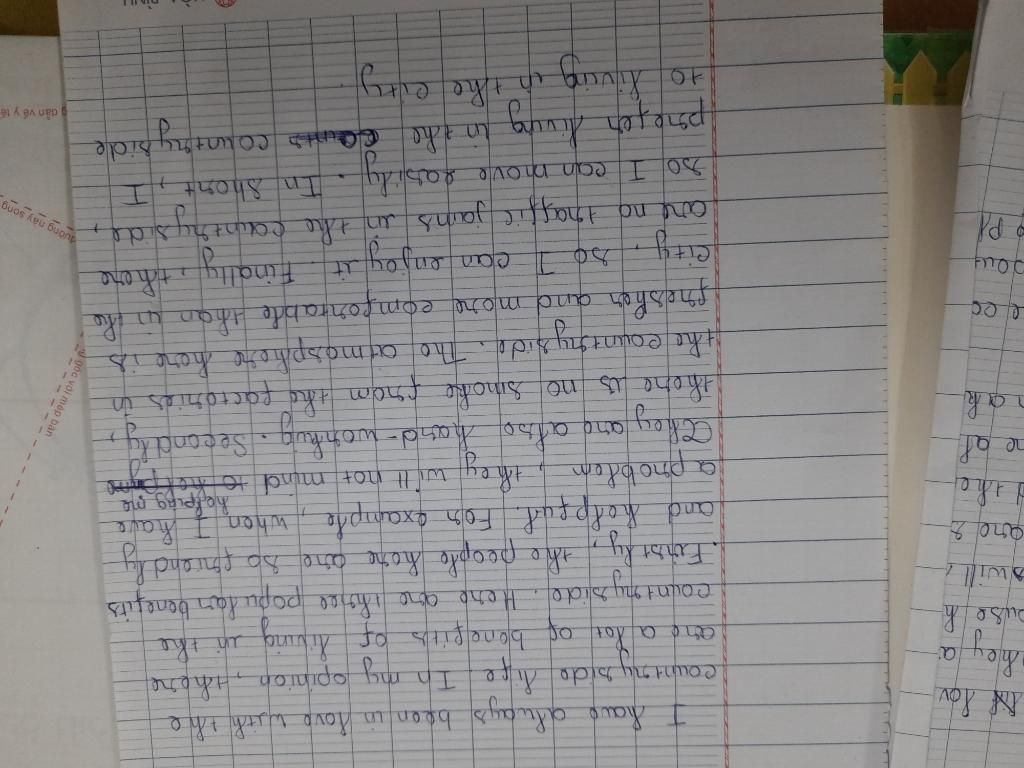 I have always been in love with the
countryside life. In my opinion, there
are a lot of benefits of living in the
countryside. Here are three popular benefits
Firstly, the people here are so friendly
and helpful. For example, when I have
a problem, they will not mind helping me
They are also hard-working. Secondly,
there is no smoke from the factories in
the countryside. The atmosphere here is
fresher and more comfortable than in the
city, so I can enjoy it. Finally, there
are no traffic jams in the countryside,
so I can move easily. In short, I
prefer living in the countryside
to living in the city.
g dẫn về y tế
đường này song
y góc với mép bàn